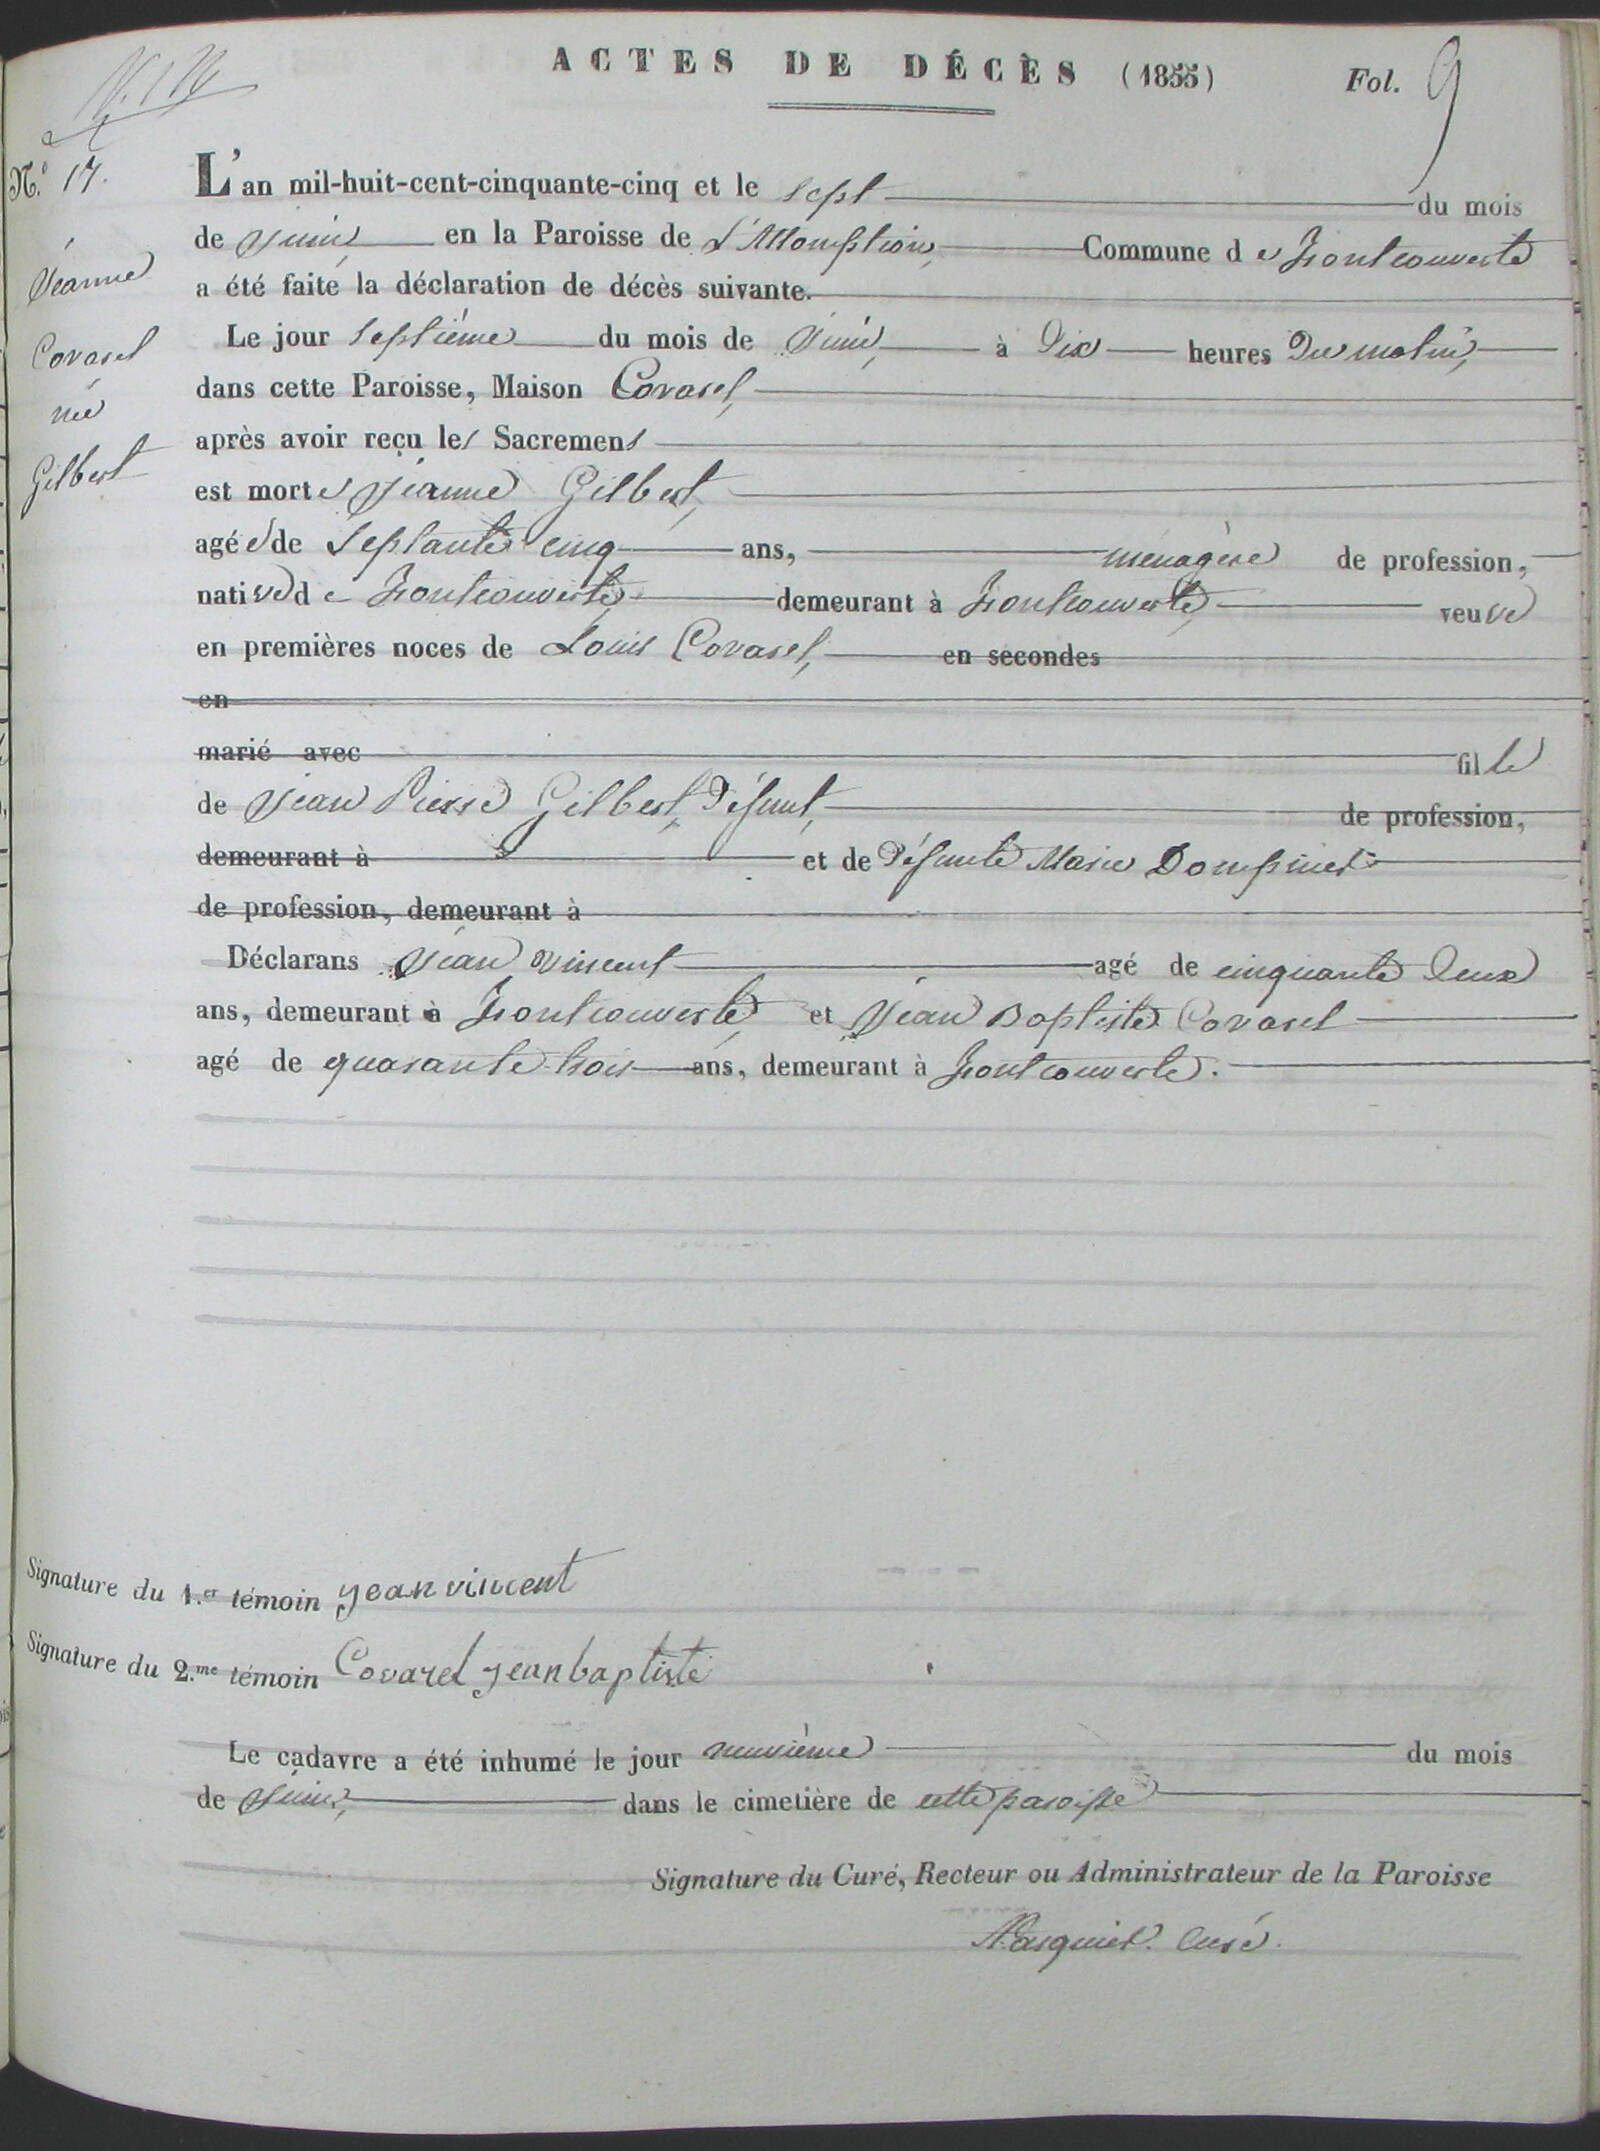 ACTES DE DÉCÈS (1855) Fol. 9
N.º 17.
Jeanne
Covarel
née
Gilbert
L'an mil-huit-cent-cinquante-cinq et le sept du mois
de juin, en la Paroisse de L'Assomption, Commune de Fontcouverte
a été faite la déclaration de décès suivante.
Le jour septième du mois de juin, à dix heures du matin,
dans cette Paroisse, Maison Covarel,
après avoir reçu les Sacremens
est morte Jeanne Gilbert,
agée de septante cinq ans, ménagère de profession,
native de Fontcouverte, demeurant à Fontcouverte, veuve
en premières noces de Louis Covarel, en secondes
en
marié avec fille
de Jean Pierre Gilbert, défunt, de profession,
demeurant à et de défunte Marie Dompmet
de profession, demeurant à
Déclarans Jean Vincent agé de cinquante deux
ans, demeurant à Fontcouverte, et Jean Baptiste Covarel
agé de quarante trois ans, demeurant à Fontcouverte.
Signature du 1.er témoin jean vincent
Signature du 2.me témoin Covarel jean baptiste
Le cadavre a été inhumé le jour neuvième du mois
de juin, dans le cimetière de cette paroisse
Signature du Curé, Recteur ou Administrateur de la Paroisse
curé.